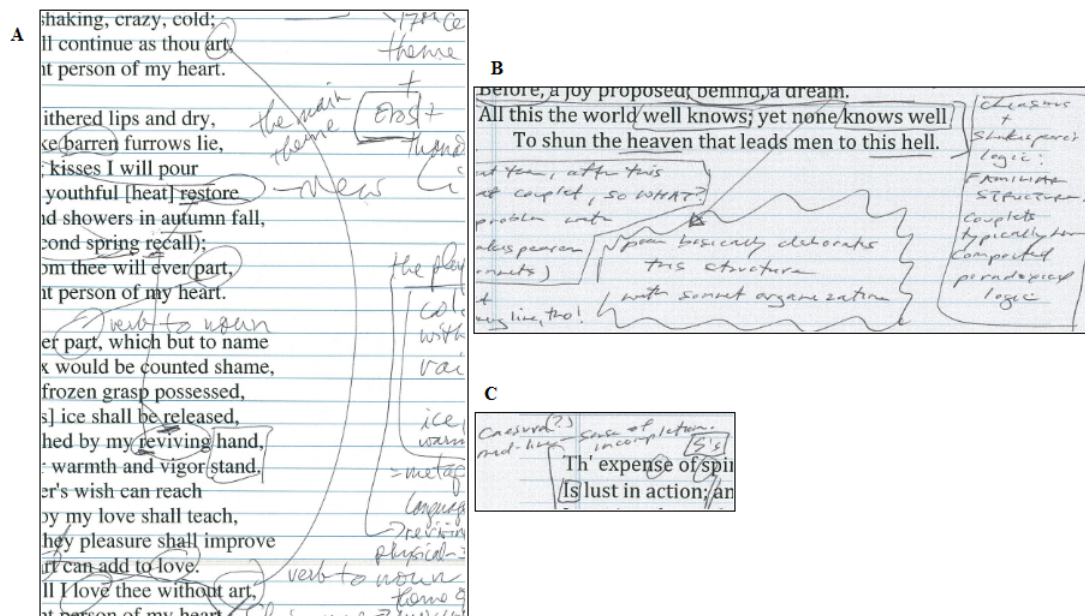 A
shaking, crazy, cold;
ll continue as thou art,
nt person of my heart.
ithered lips and dry,
ke barren furrows lie,
kisses I will pour
youthful [heat] restore
nd showers in autumn fall,
cond spring recall);
om thee will ever part,
nt person of my heart.
er part, which but to name
x would be counted shame,
frozen grasp possessed,
s] ice shall be released,
hed by my reviving hand,
warmth and vigor stand,
er's wish can reach
by my love shall teach,
hey pleasure shall improve
rt can add to love.
ll I love thee without art,
nt person of my heart
17th Ce
theme
+
Eros +
the main
theme
New
verb to noun
the play
col
with
vai
ice,
warm
= metap
languag
physical
verb to noun
theme
B
Before, a joy proposed; behind, a dream.
All this the world well knows; yet none knows well
To shun the heaven that leads men to this hell.
after this
couplet, so WHAT?
problem with
poem basically elaborates
this structure
with sonnet organization
line, tho!
chiasmus
+
Shakespeare's
logic:
FAMILIAR
STRUCTURE.
Couplets
typically
compacted
paradoxical
logic
C
Caesura(?)
mid-line - sense of
incompletion.
S's
Th' expense of spi
Is lust in action; an